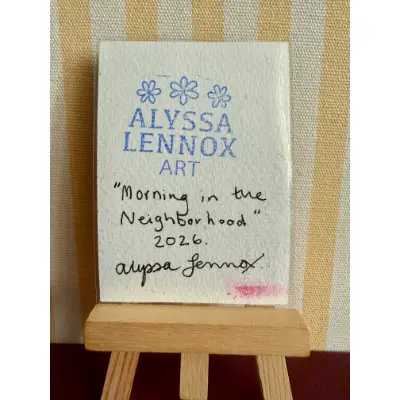 ALYSSA
LENNOX
ART
"Morning in the
Neighborhood"
2026.
alyssa lennox.